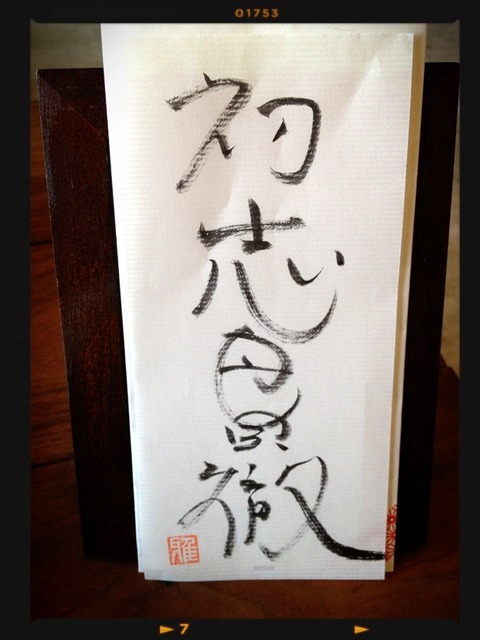 01753
初志貫徹
雅
7